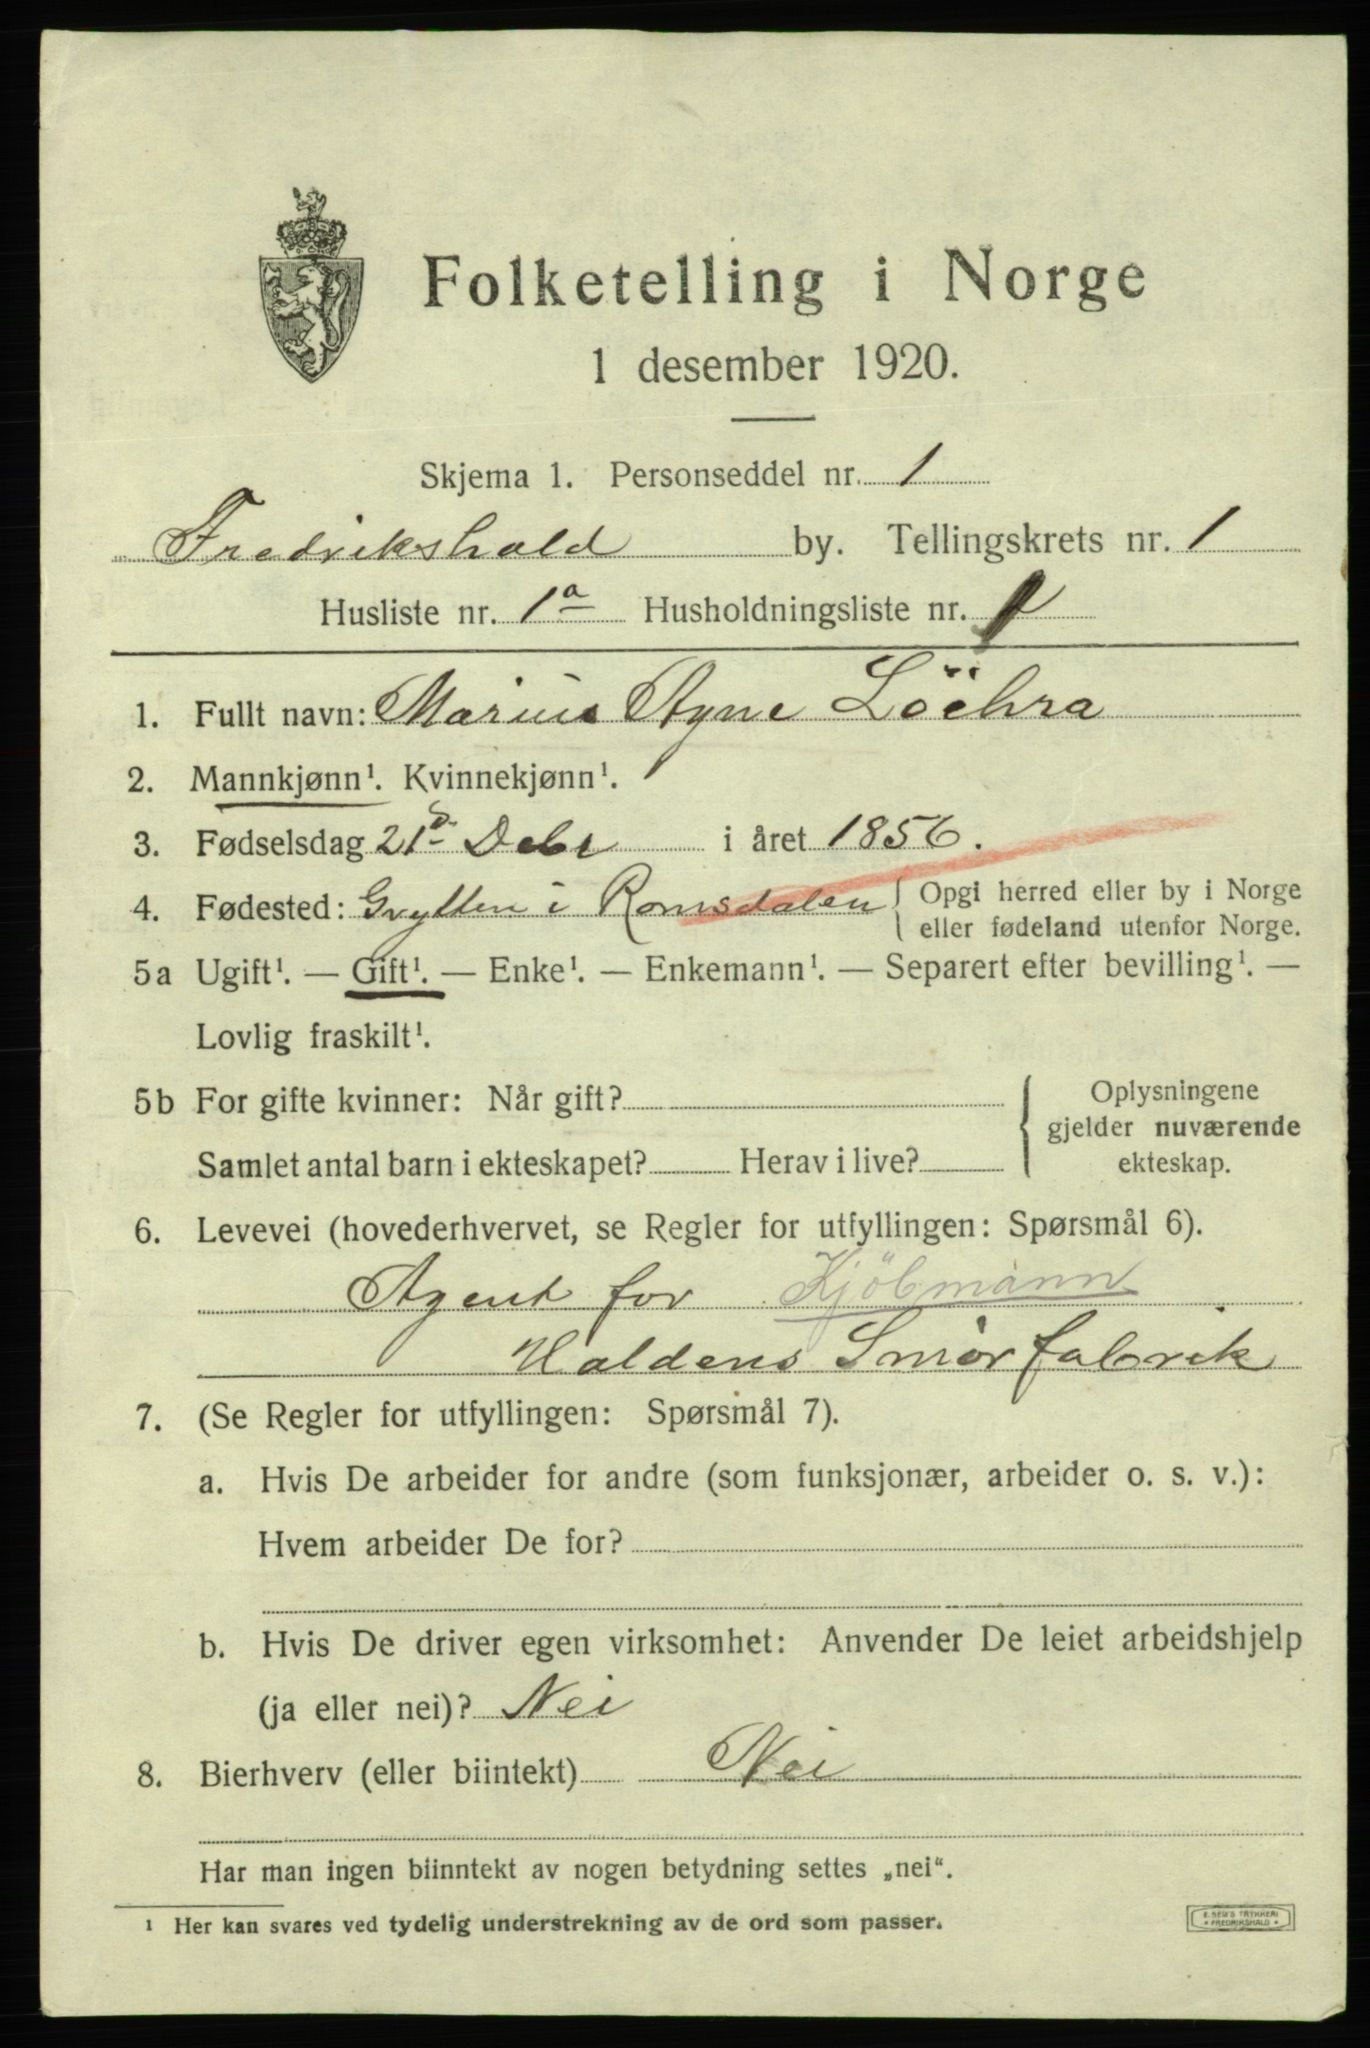 Folketelling i Norge
1 desember 1920.
Skjema 1. Personseddel nr. 1
Fredrikshald by. Tellingskrets nr. 1
Husliste nr. 1a Husholdningsliste nr. 1
1. Fullt navn: Marius Agne Löchra
2. Mannkjønn¹. Kvinnekjønn¹.
3. Fødselsdag 21d Debr i året 1856.
4. Fødested: Grytten i Romsdalen { Opgi herred eller by i Norge
eller fødeland utenfor Norge.
5a Ugift¹. — Gift¹. — Enke¹. — Enkemann¹. — Separert efter bevilling¹. —
Lovlig fraskilt¹.
5b For gifte kvinner: Når gift?
Samlet antal barn i ekteskapet? Herav i live?
{ Oplysningene
gjelder nuværende
ekteskap.
6. Levevei (hovederhvervet, se Regler for utfyllingen: Spørsmål 6).
Agent for Kjöbmann
Haldens Smørfabrik
7. (Se Regler for utfyllingen: Spørsmål 7).
a. Hvis De arbeider for andre (som funksjonær, arbeider o. s. v.):
Hvem arbeider De for?
b. Hvis De driver egen virksomhet: Anvender De leiet arbeidshjelp
(ja eller nei)? Nei
8. Bierhverv (eller biintekt) Nei
Har man ingen biinntekt av nogen betydning settes „nei“.
¹ Her kan svares ved tydelig understrekning av de ord som passer.
E. SEM'S TRYKKERI
• FREDRIKSHALD •